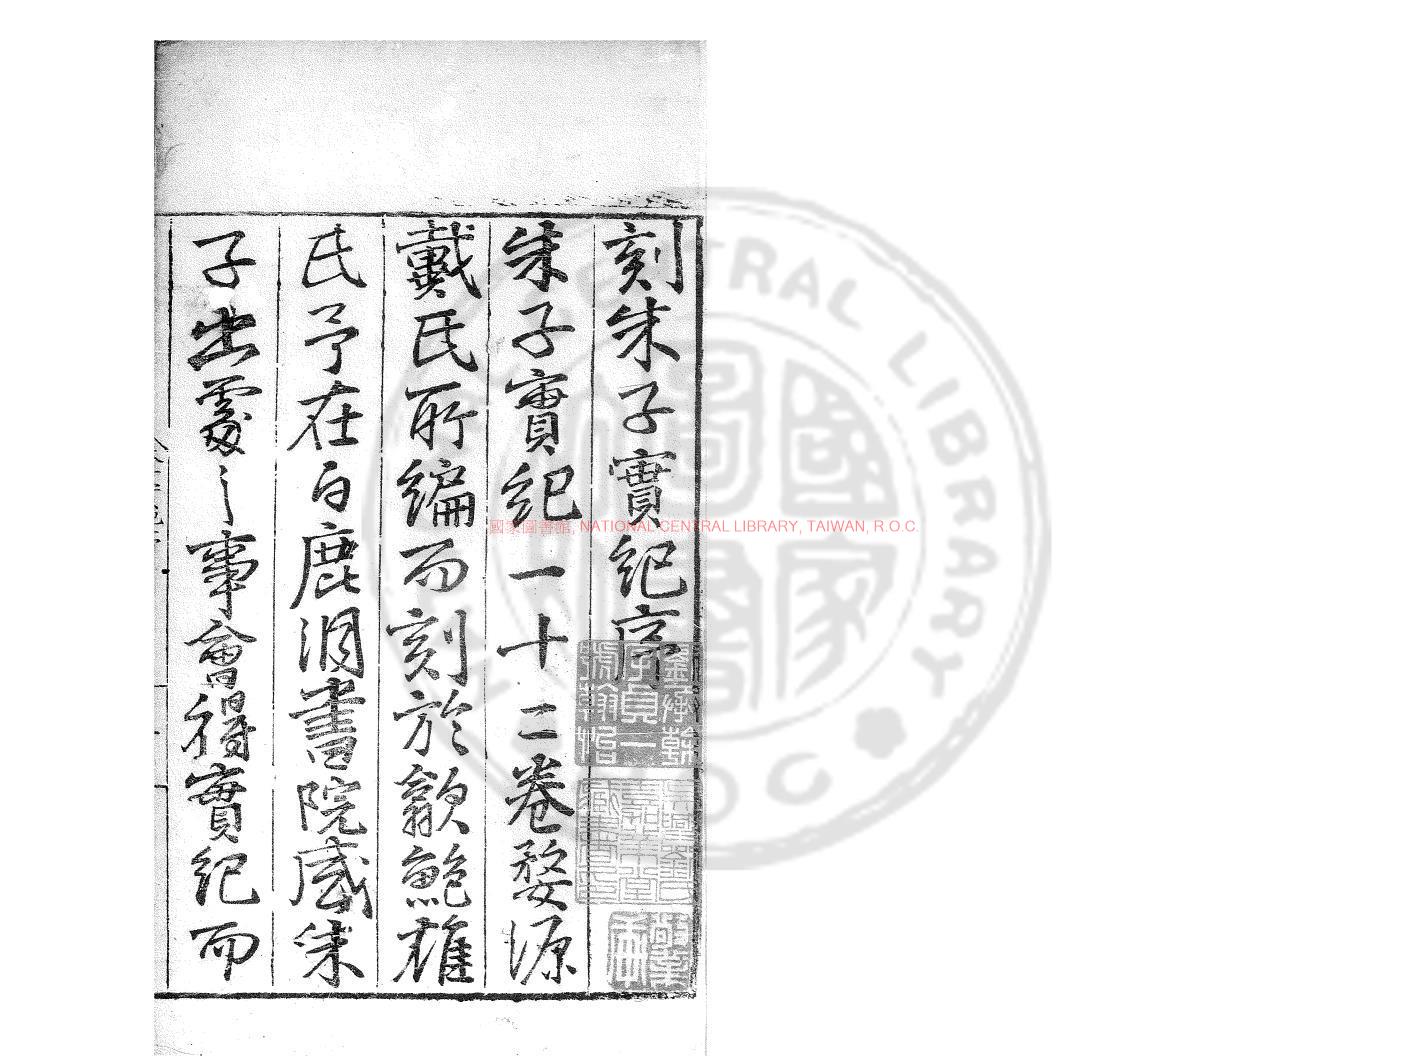 刻朱子實紀序
朱子實紀一十二卷婺源
戴氏所編而刻於歙鮑雄
氏予在白鹿洞書院感朱
子出處之事會得實紀而
國家圖書館, NATIONAL CENTRAL LIBRARY, TAIWAN, R.O.C.